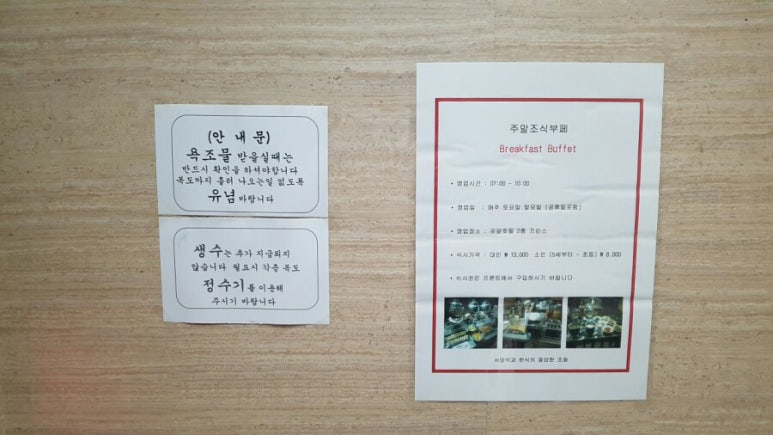 (안 내 문)
욕조물 받을실때는
반드시 확인을 하셔야합니다
복도까지 흘러 나오는일 없도록
유념 바랍니다
생수는 추가 지급되지
않습니다 필요시 각층 복도
정수기를 이용해
주시기 바랍니다
주말조식부페
Breakfast Buffet
• 영업시간 : 07:00 - 10:00
• 영업일 : 매주 토요일 일요일 (공휴일포함)
• 영업장소 : 로얄호텔 2층 프린스
• 식사가격 : 대인 ₩ 13,000 소인 (5세부터 - 초등) ₩ 8,000
• 식사권은 프론트에서 구입하시기 바랍니다
서양식과 한식의 절묘한 조화